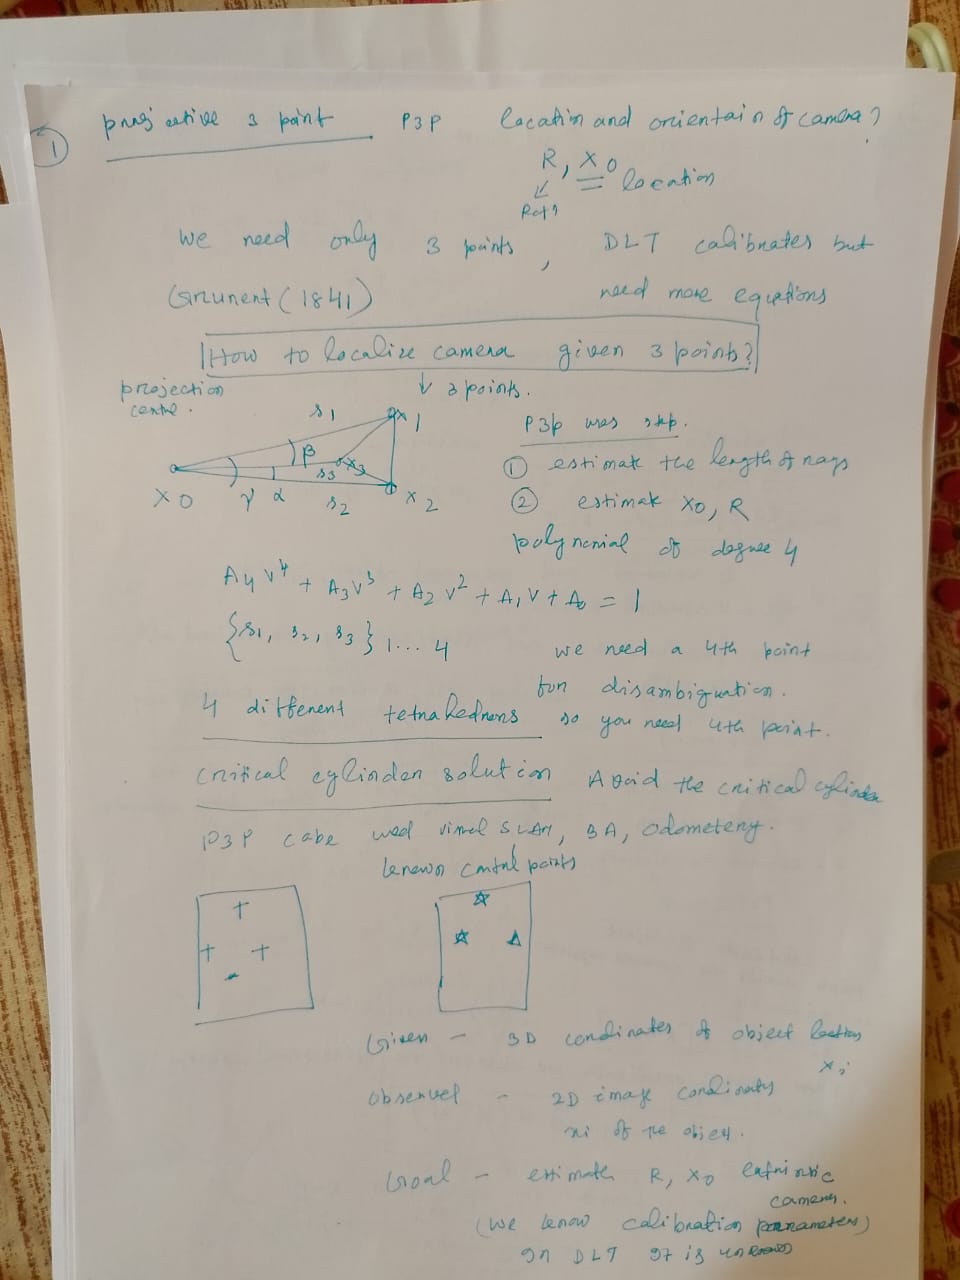 ① projective 3 point P3P location and orientain of camera?
R, X0 location
Rotn
We need only 3 points, DLT calibrates but
Grunert (1841) need more equations
How to localize camera given 3 points?
projection 3 points.
centre.
s1 x1
β P3P uses step.
s3 x3 ① estimate the length of rays
X0 γ α s2 x2 ② estimate X0, R
polynomial of degree 4
A4 v^4 + A3 v^3 + A2 v^2 + A1 v + A0 = 1
{s1, s2, s3} 1...4 we need a 4th point
for disambiguation.
4 different tetrahedrons so you need 4th point.
critical cylinder solution Avoid the critical cylinder
P3P used visual SLAM, BA, odometery.
known control points
Given - 3D cordinates of object
xi
observed - 2D image
xi of the object.
Goal - estimate R, X0 extrinsic
camera.
(we know calibration parameters)
In DLT it is unknown